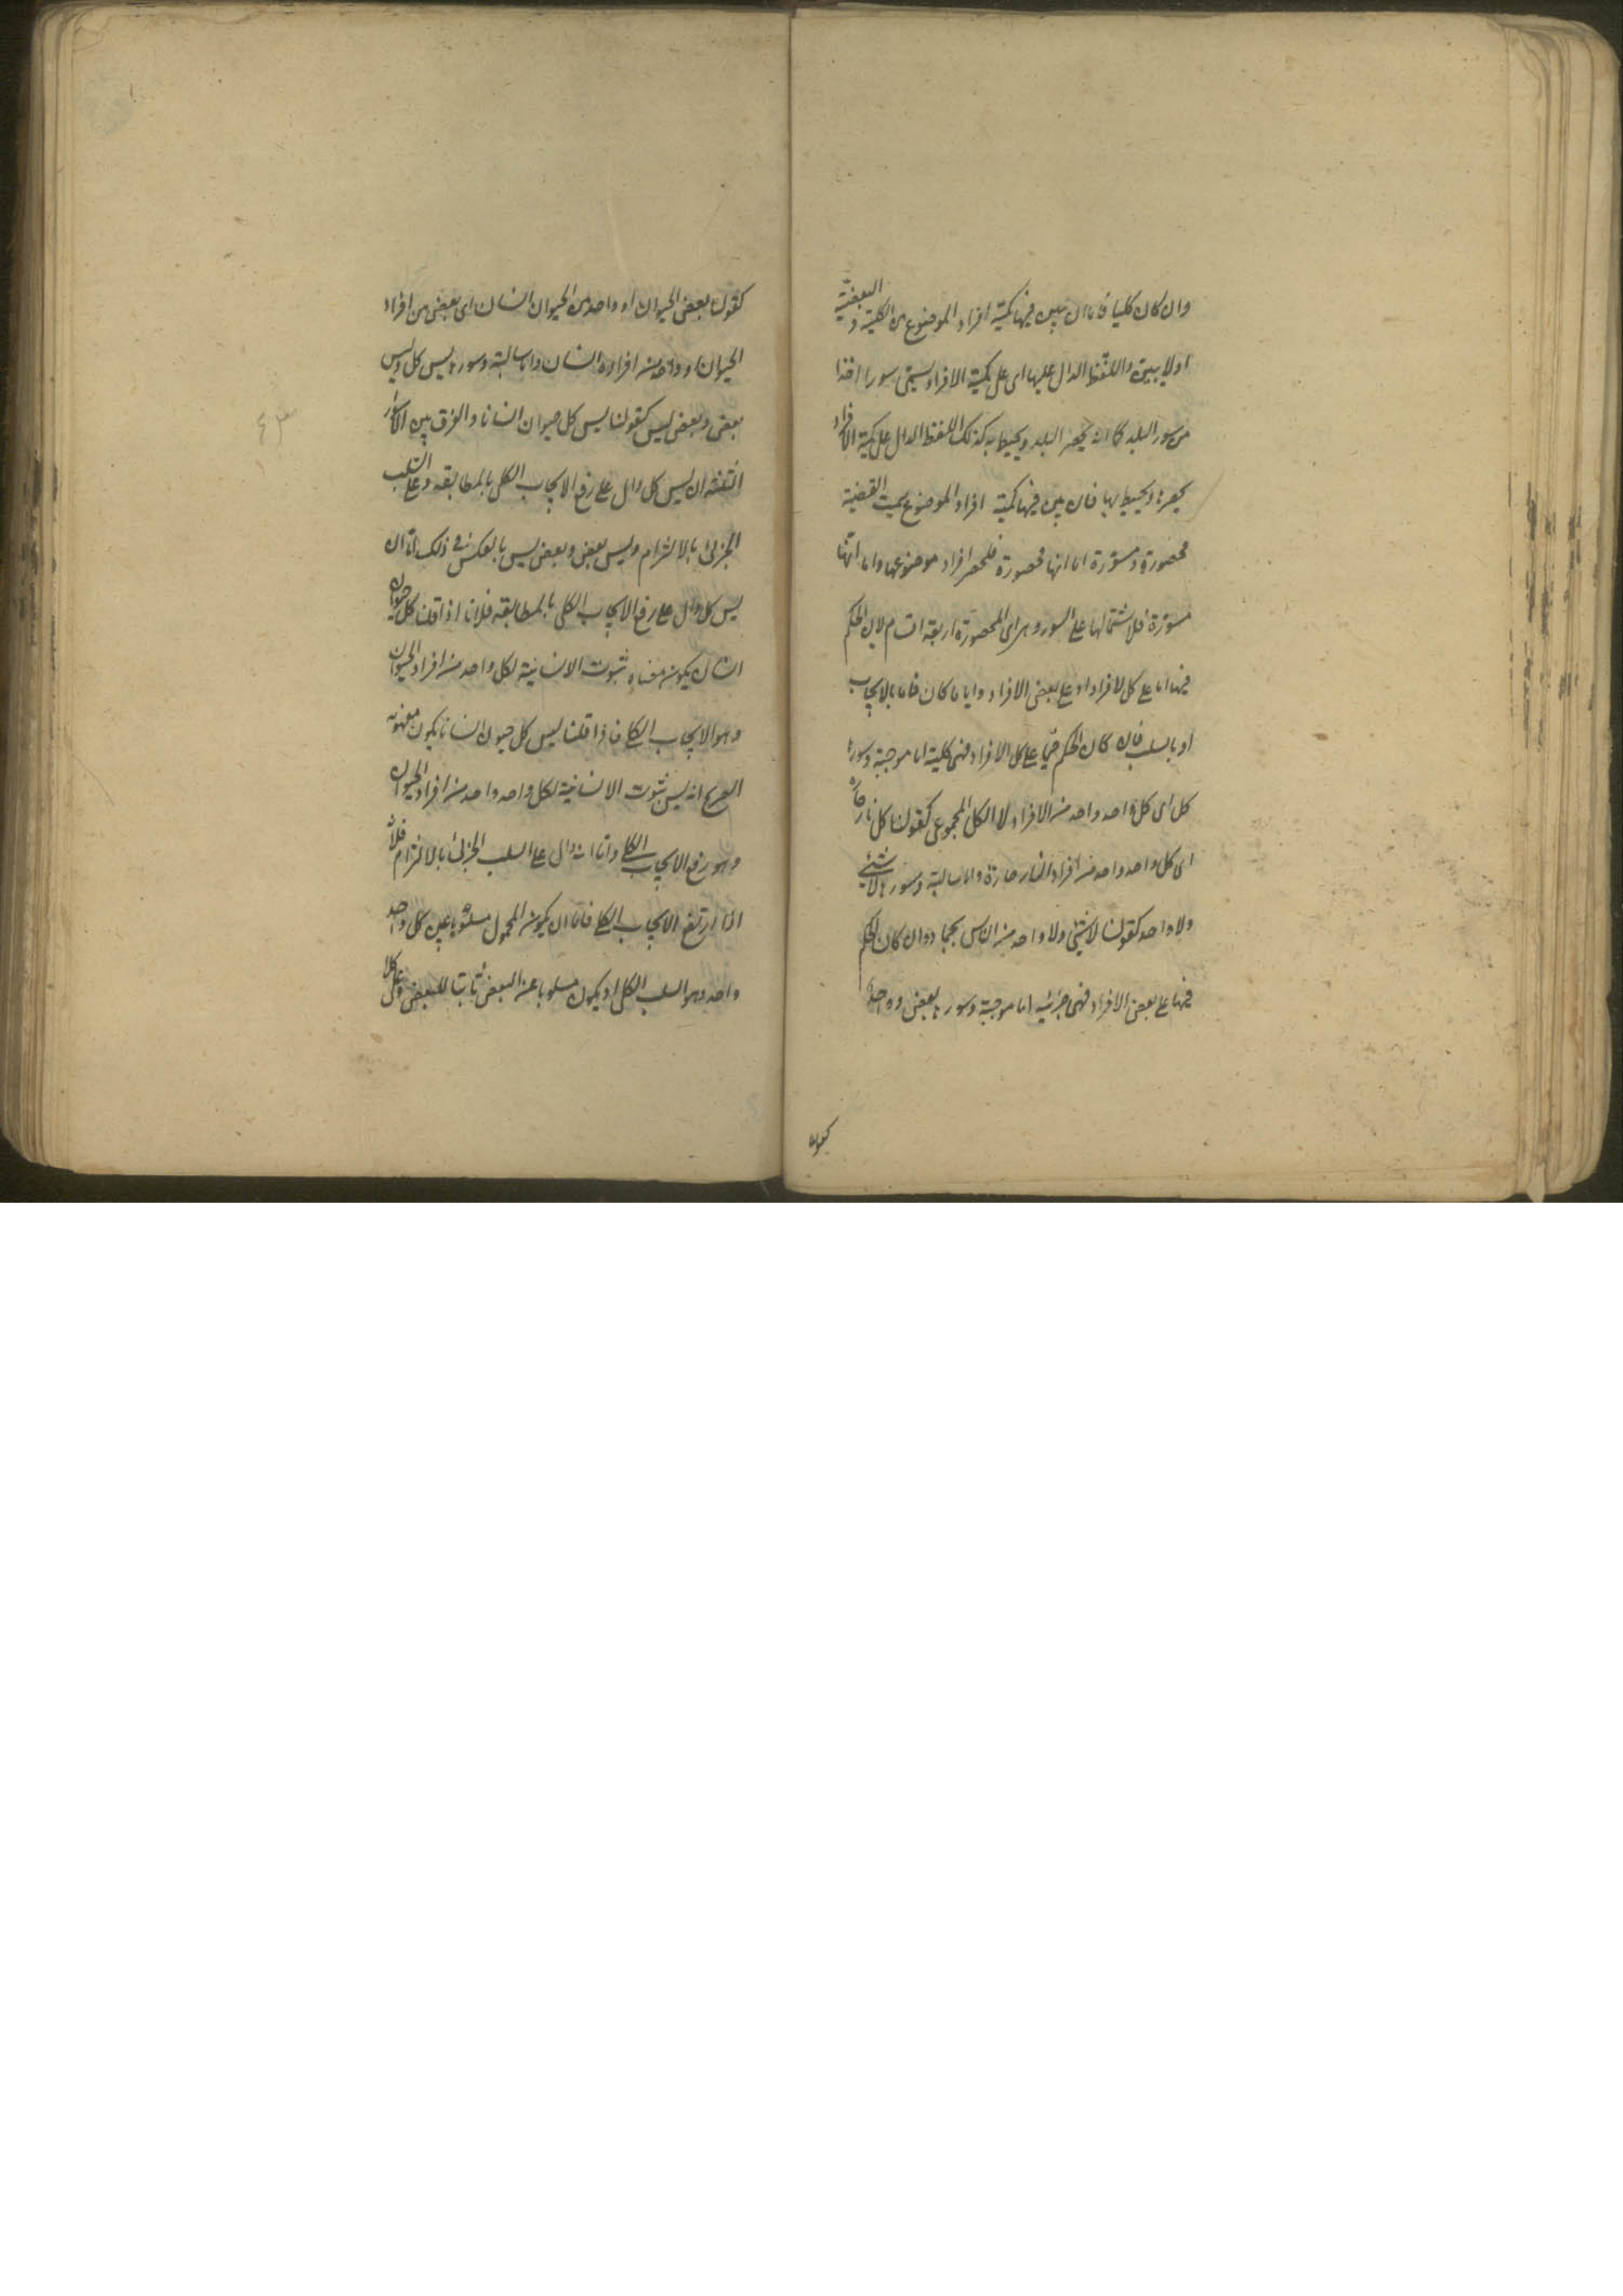 وان كان كليا فاما ان يبين فيها كمية افراد الموضوع من الكلية و البعضية
او لا يبين واللفظ الدال عليها اى على كمية الافراد يسمى سورا اخذا
من سور البلد كما انه يحصر البلد ويحيط به كذلك اللفظ الدال على كمية الافراد
يحصرها ويحيط بها فان بين فيها كمية افراد الموضوع سميت القضية
محصورة ومسورة اما انها محصورة فلحصر افراد موضوعها واما انها
مسورة فلاشتمالها على السور وهى اى المحصورة اربعة اقسام لان الحكم
فيها اما على كل الافراد او على بعض الافراد وايا ما كان فاما بالايجاب
او بالسلب فان كان الحكم فيها على كل الافراد فهى كلية اما موجبة وسورها
كل اى كل واحد واحد من الافراد لا الكل المجموعى كقولنا كل نار حارة
اى كل واحد واحد من افراد النار حارة واما سالبة وسورها لا شئ
ولا واحد كقولنا لا شئ ولا واحد من الناس بجماد وان كان الحكم
فيها على بعض الافراد فهى جزئية اما موجبة وسورها بعض و واحد
كقولنا
كقولنا بعض الحيوان او واحد من الحيوان انسان اى بعض من افراد
الحيوان او واحد من افراده انسان واما سالبة وسورها ليس كل وليس
بعض وبعض ليس كقولنا ليس كل حيوان انسانا والفرق بين الاسوار
الثلثة ان ليس كل دال على رفع الايجاب الكلى بالمطابقة وعلى السلب
الجزئى بالالتزام وليس بعض وبعض ليس بالعكس فى ذلك اما ان
ليس كل دال على رفع الايجاب الكلى بالمطابقة فلانا اذا قلنا كل حيوان
انسان يكون معناه ثبوت الانسانية لكل واحد من افراد الحيوان
وهو الايجاب الكلى فاذا قلنا ليس كل حيوان انسانا يكون مفهومه
الصريح انه ليس ثبوت الانسانية لكل واحد واحد من افراد الحيوان
وهو رفع الايجاب الكلى واما انه دال على السلب الجزئى بالالتزام فلانه
اذا ارتفع الايجاب الكلى فاما ان يكون المحمول مسلوبا عن كل واحد
واحد وهو السلب الكلى او يكون مسلوبا عن البعض ثابتا للبعض وعلى كلا